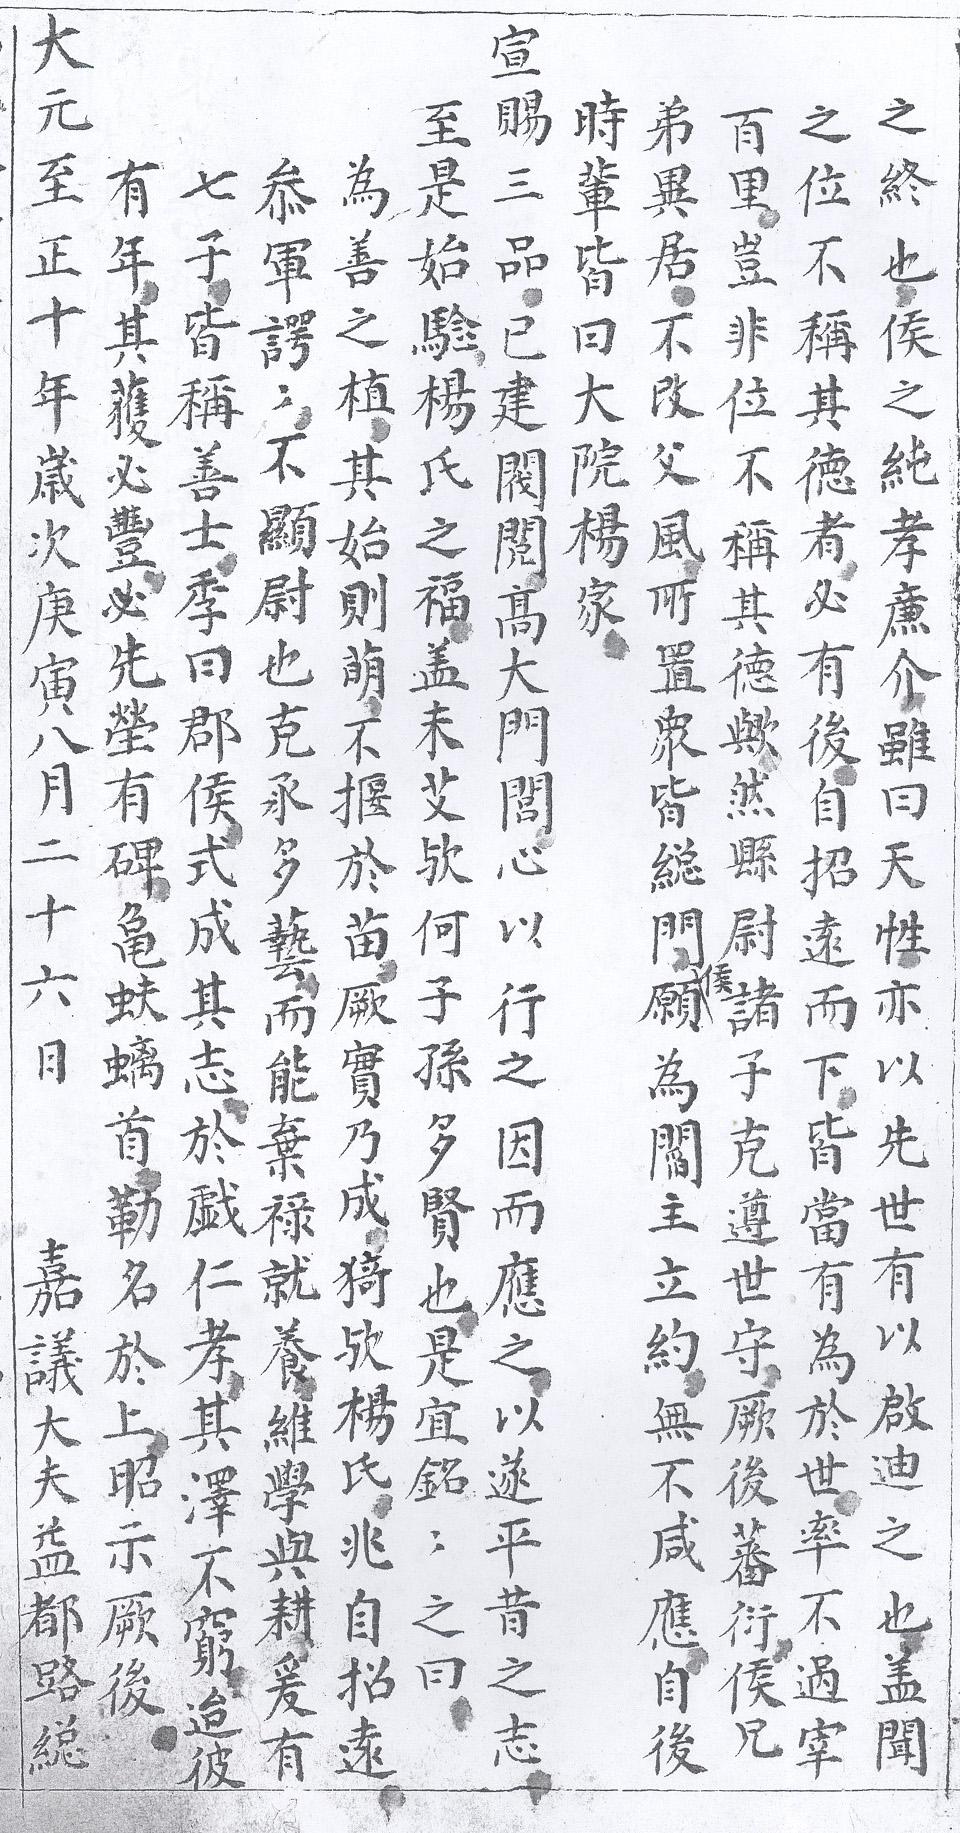 之終也侯之純孝廉介雖曰天性亦以先世有以啟迪之也盖聞
之位不稱其德者必有後自招遠而下皆當有為於世率不過宰
百里豈非位不稱其德歟然縣尉諸子克遵世守厥後蕃衍侯兄
弟異居不改父風所置衆皆緫門願侯為閽主立約無不咸應自後
時輩皆曰大院楊家
宣賜三品已建閥閱高大門閭心以行之因而應之以遂平昔之志
至是始驗楊氏之福盖未艾欤何子孫多賢也是宜銘〻之曰
為善之植其始則萌不揠於苗厥實乃成猗欤楊氏兆自招遠
叅軍諤〻不顯尉也克承多藝而能棄祿就養維學與耕爰有
七子皆稱善士季曰郡侯式成其志於戯仁孝其澤不窮迨彼
有年其穫必豐必先塋有碑亀蚨螭首勒名於上昭示厥後
大元至正十年歲次庚寅八月二十六日　嘉議大夫益都路緫